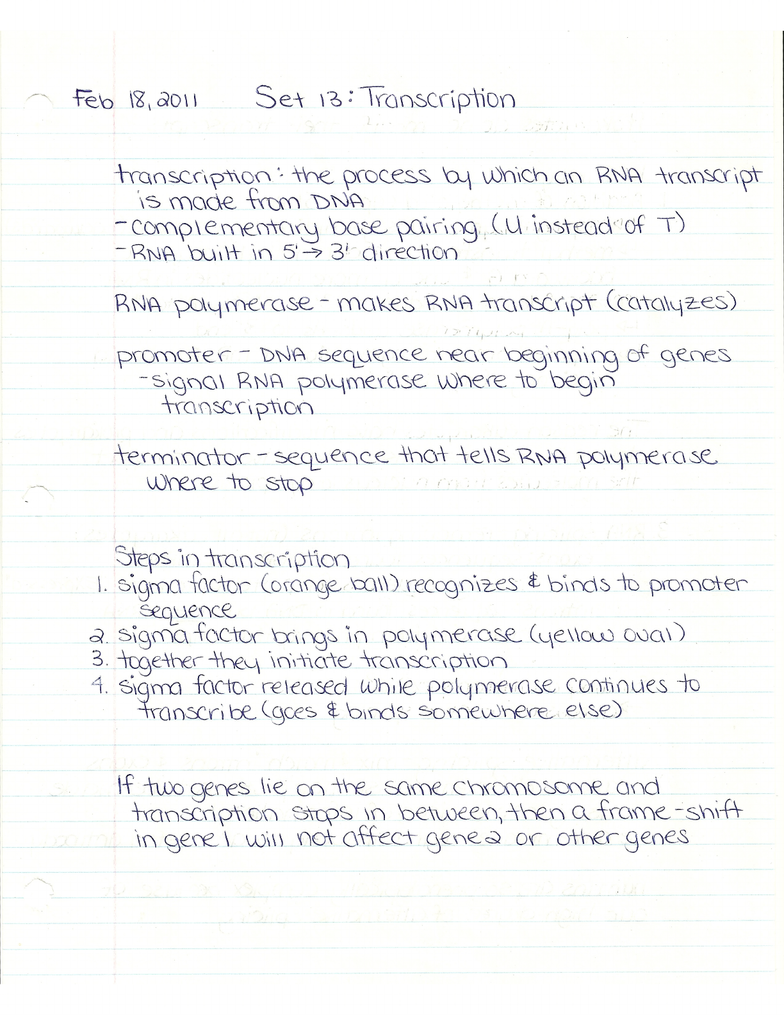 Feb 18, 2011 Set 13: Transcription
transcription: the process by which an RNA transcript
is made from DNA
- complementary base pairing (U instead of T)
- RNA built in 5' → 3' direction
RNA polymerase - makes RNA transcript (catalyzes)
promoter - DNA sequence near beginning of genes
- signal RNA polymerase where to begin
transcription
terminator - sequence that tells RNA polymerase
where to stop
Steps in transcription
1. sigma factor (orange ball) recognizes & binds to promoter
sequence
2. sigma factor brings in polymerase (yellow oval)
3. together they initiate transcription
4. sigma factor released while polymerase continues to
transcribe (goes & binds somewhere else)
If two genes lie on the same chromosome and
transcription stops in between, then a frame-shift
in gene 1 will not affect gene 2 or other genes